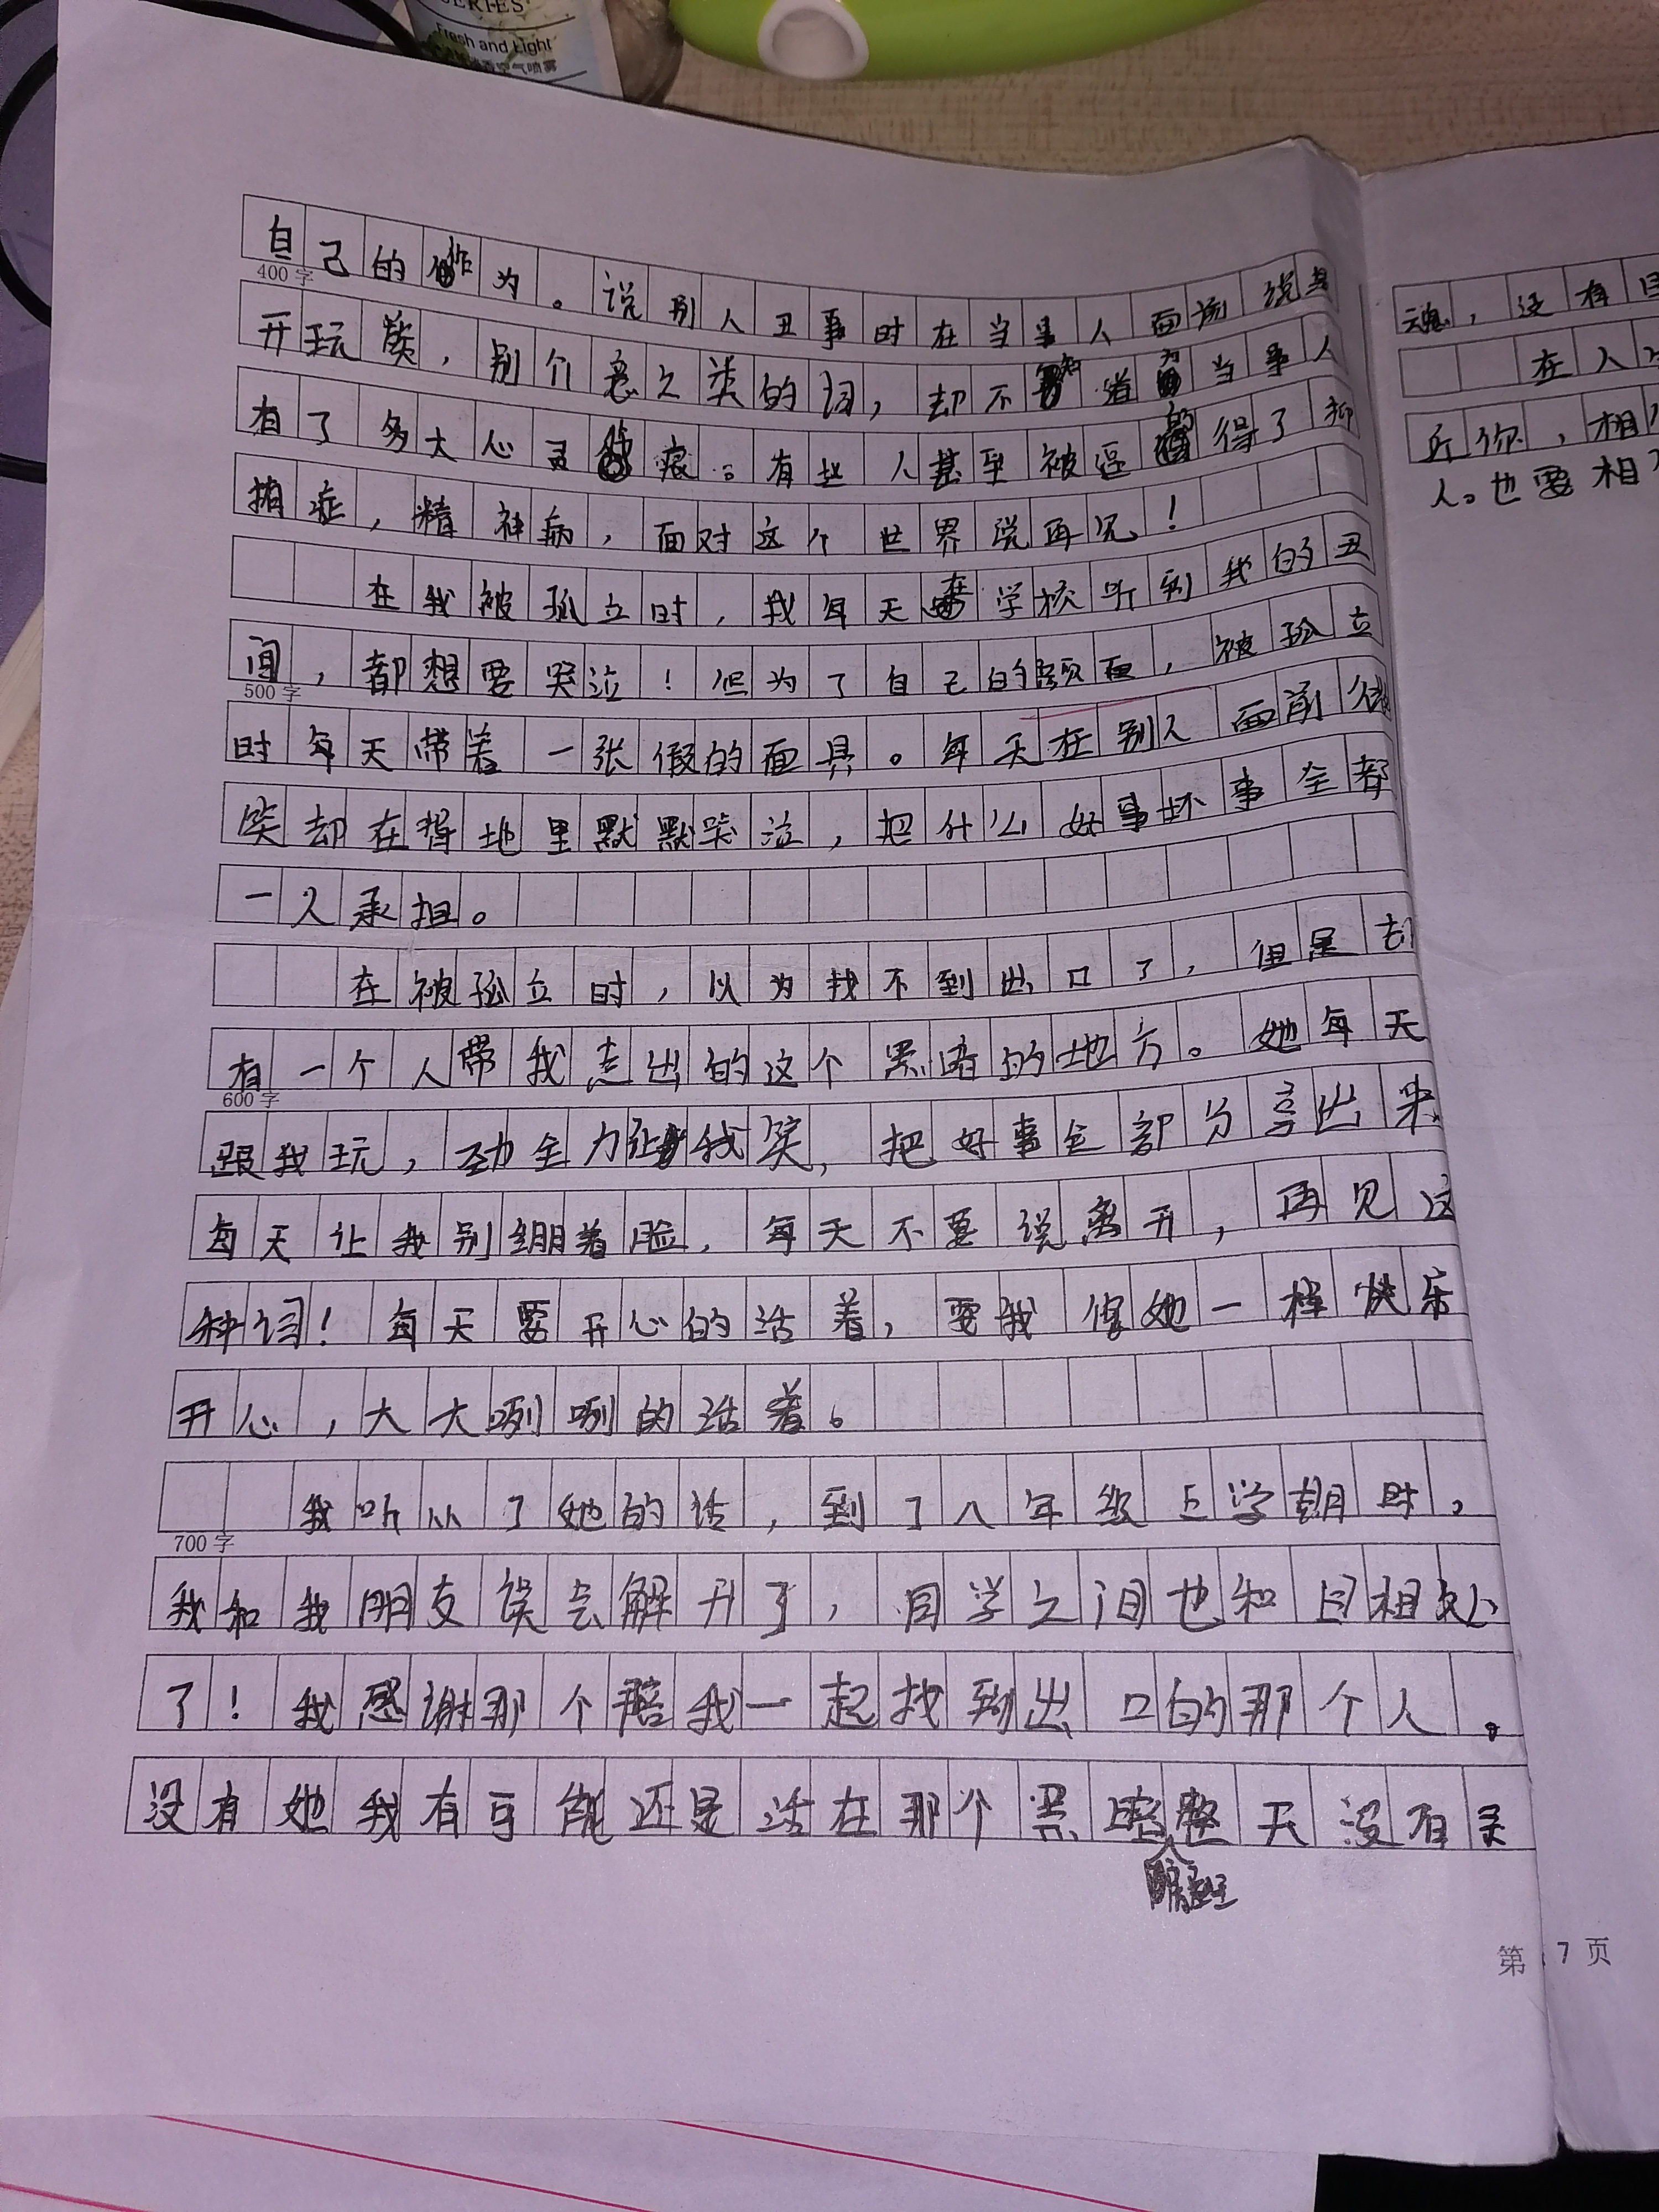 SERIES
Fresh and Light
空气喷雾
自己的作为。说别人丑事时在当事人面前说是
400字
开玩笑，别介意之类的词，却不知道为当事人
有了多大心灵伤痕。有些人甚至被逼的得了抑
擔症，精神病，面对这个世界说再见！
在我被孤立时，我每天在学校听到我的丑
闻，都想要哭泣！但为了自己的颜面，被孤立
500字
时每天带着一张假的面具。每天在别人面前微
笑却在背地里默默哭泣，把什么好事坏事全都
一人承担。
在被孤立时，以为找不到出口了，但是却
有一个人带我走出的这个黑暗的地方。她每天
600字
跟我玩，劲全力让我笑，把好事全部分享出来
每天让我别绷着脸，每天不要说离开，再见这
种词！每天要开心的活着，要我像她一样快乐
开心，大大咧咧的活着。
我听从了她的话，到了八年级上学期时，
700字
我和我朋友误会解开了，同学之间也和目相处
了！我感谢那个陪我一起找到出口的那个人。
没有她我有可能还是活在那个黑暗整天没有灵
第7页
魂，没有
在人
近你，相
人。也要相